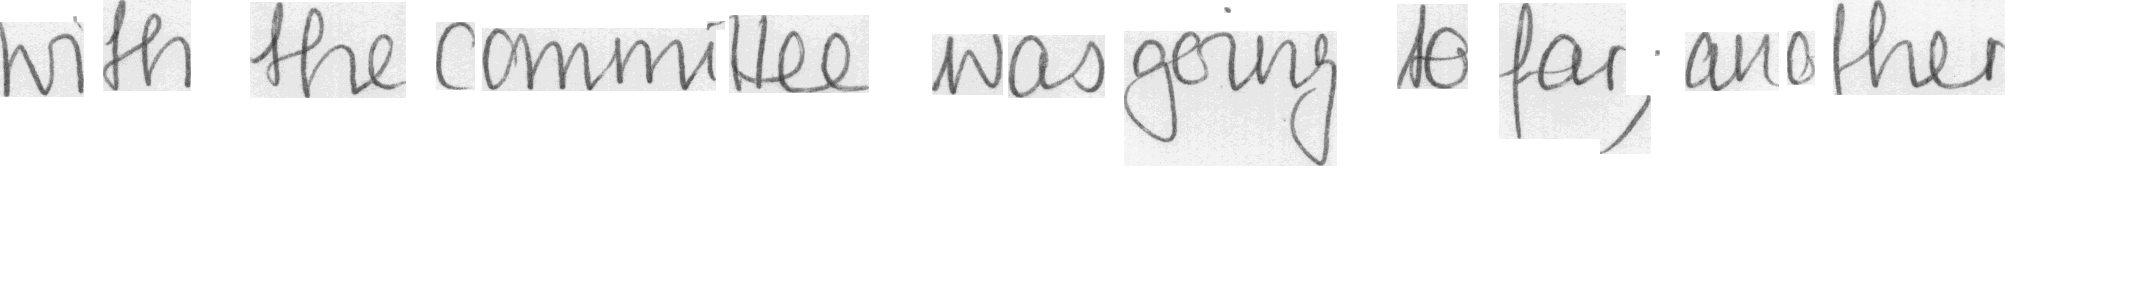 with the committee was going to far; another